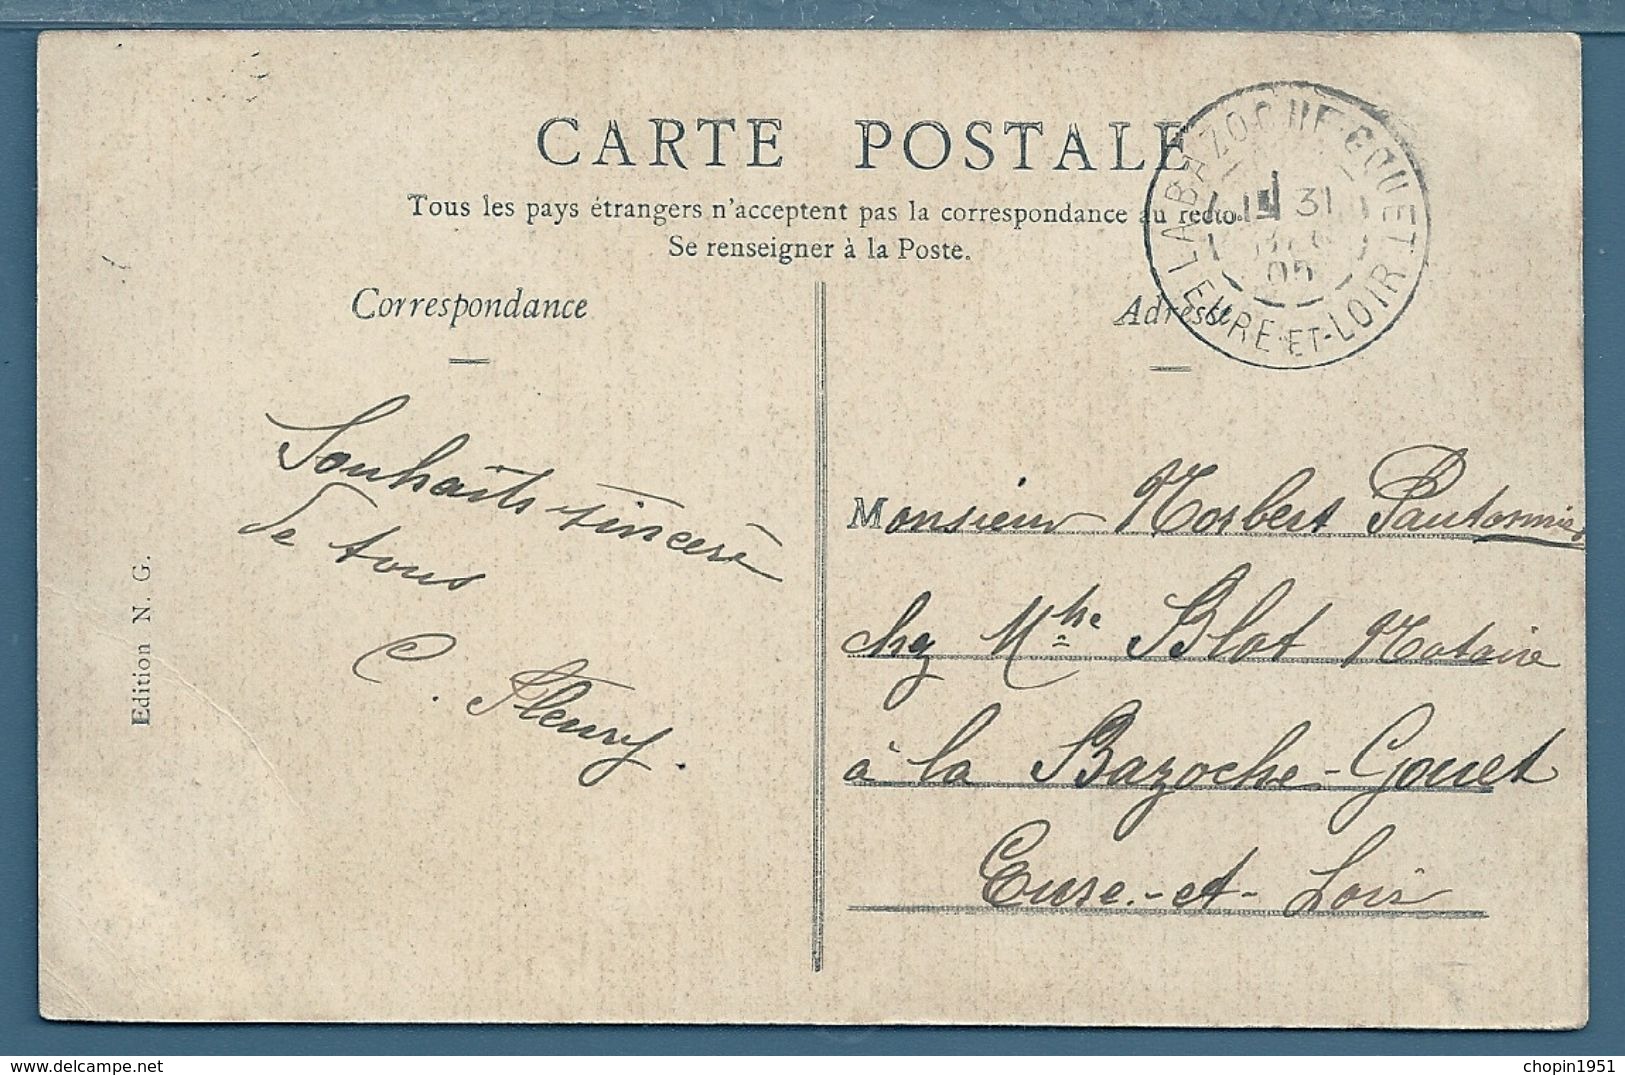 CARTE POSTALE
Tous les pays étrangers n'acceptent pas la correspondance au recto.
Se renseigner à la Poste.
Correspondance
Souhaits sincères
de tous
C. Fleury.
Edition N. G.
Adresse
LA BAZOCHE-GOUET
31
05
EURE-ET-LOIR
Monsieur Norbert
chez Mtre Blot Notaire
à la Bazoche-Gouet
Eure-et-Loir
chopin1951